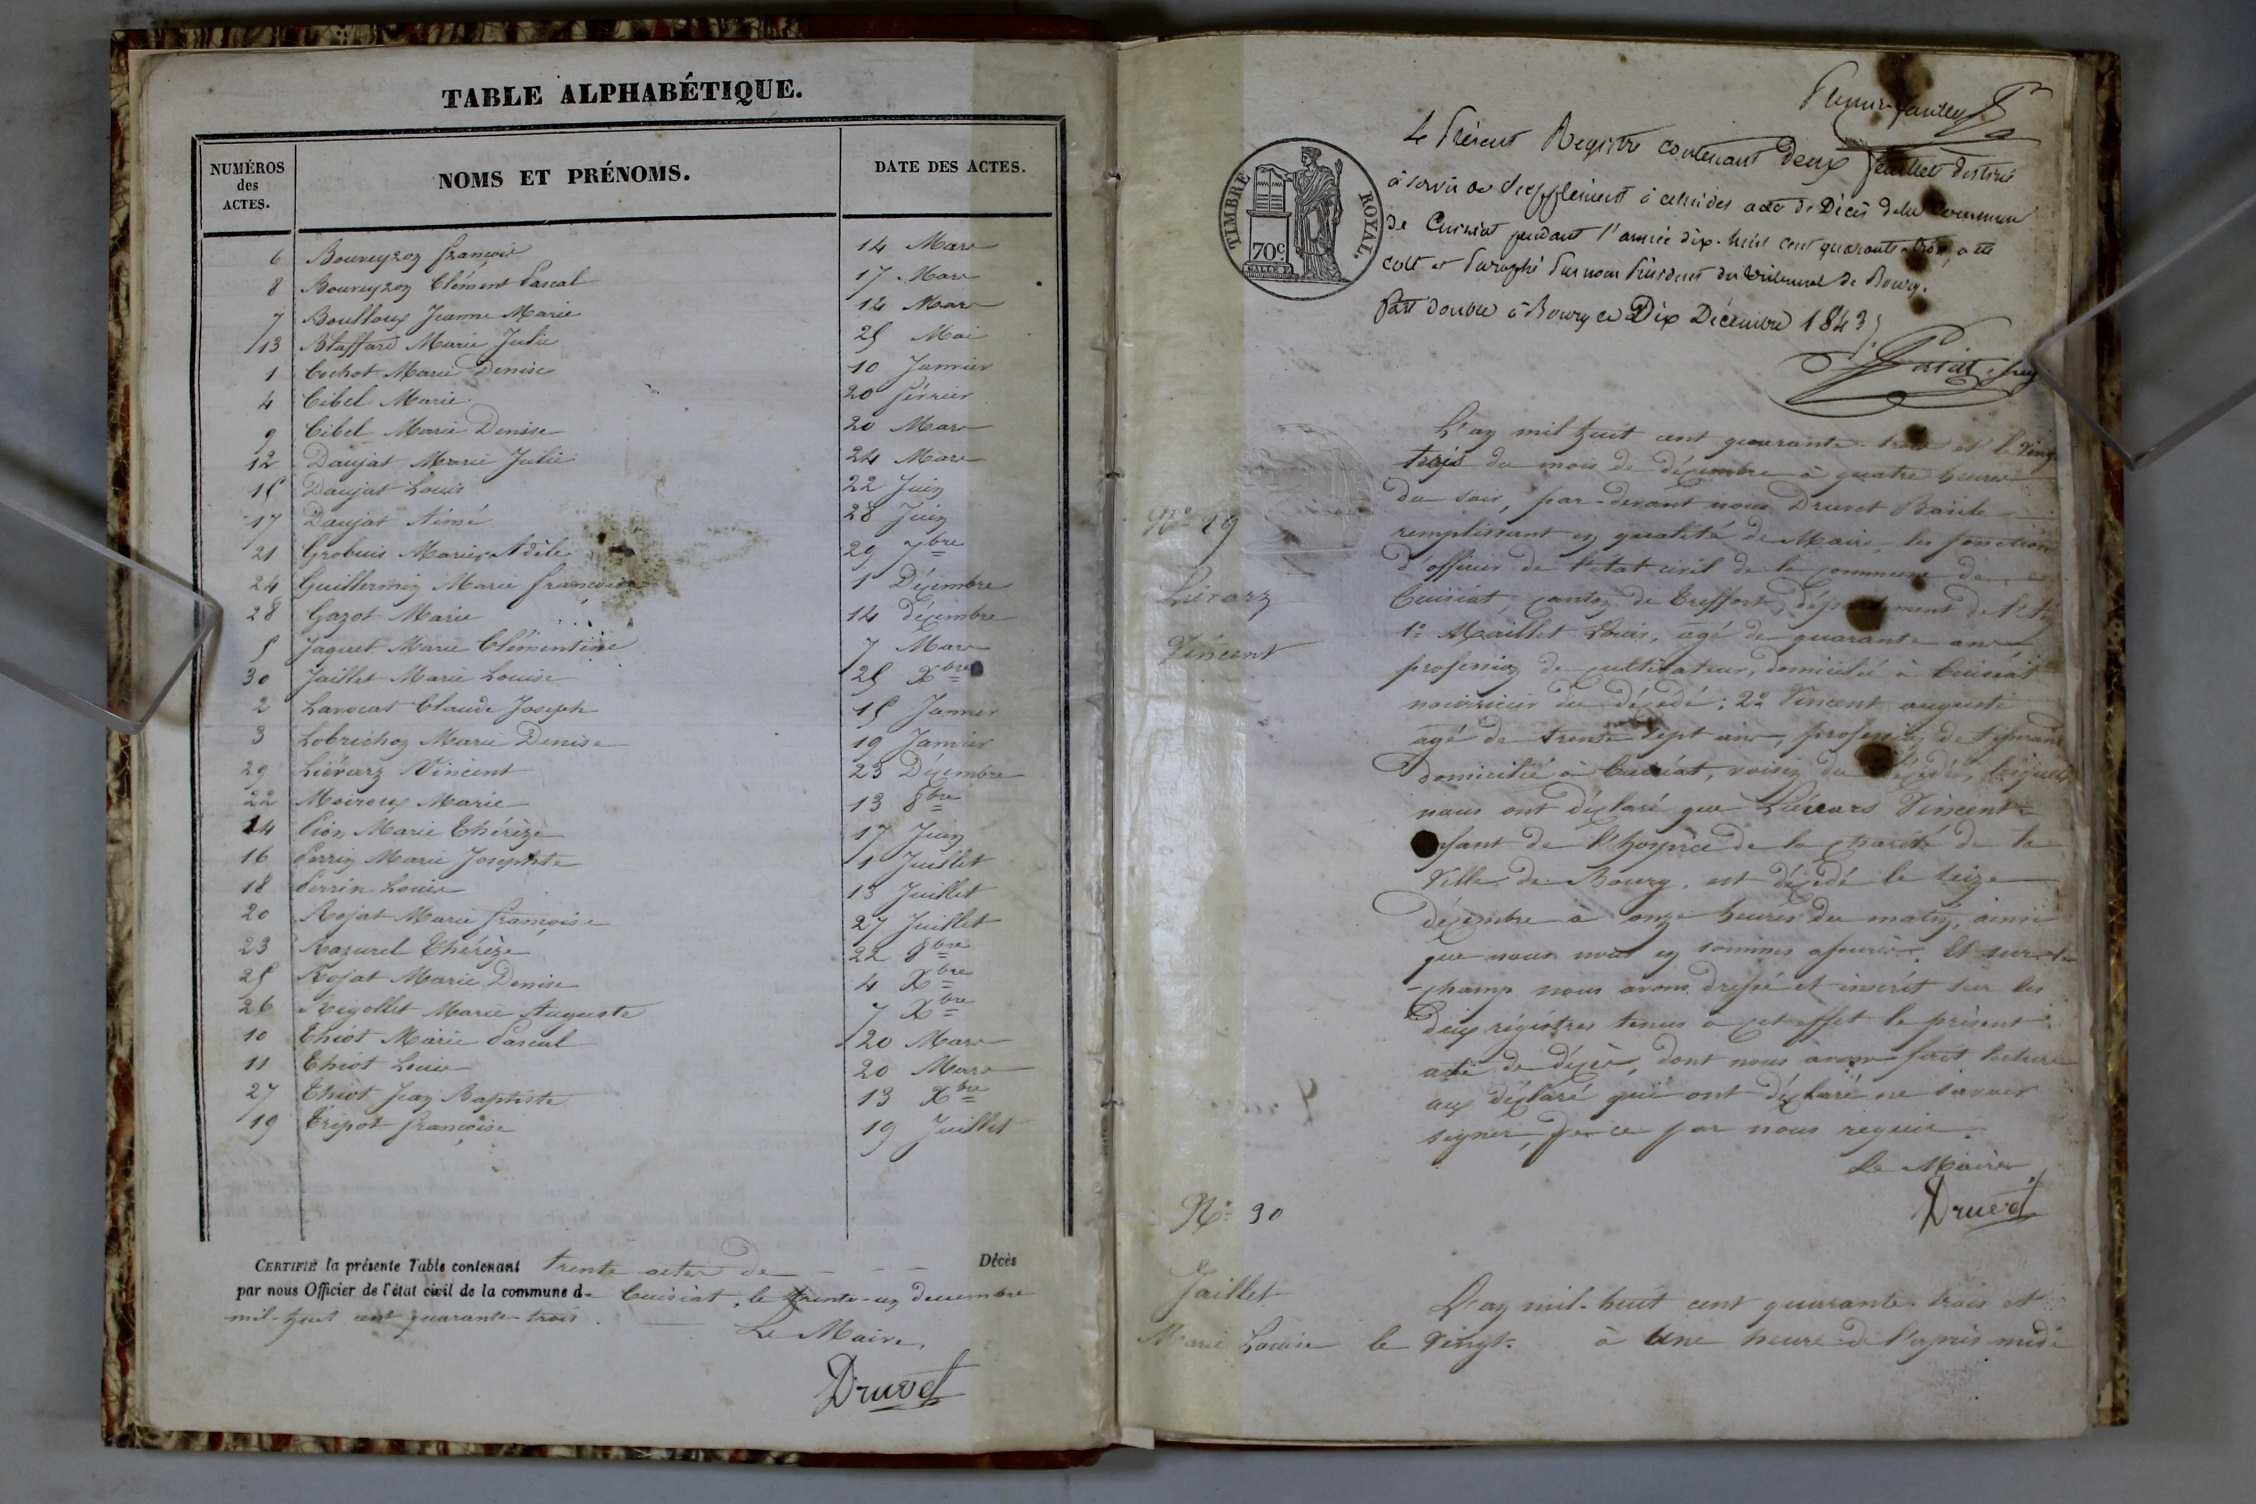 TABLE ALPHABÉTIQUE.
NUMÉROS des ACTES.
NOMS ET PRÉNOMS.
DATE DES ACTES.
6 Bouveyron François 14 Mars
8 Bouveyron Clément Pascal 17 Mars
7 Boulloux Jeanne Marie 14 Mars
13 Blaffard Marie Julie 25 Mai
1 Cochot Marie Denise 10 Janvier
4 Cibel Marie 20 février
9 Cibel Marie Denise 20 Mars
12 Daujat Marie Julie 24 Mars
15 Daujat Louis 22 Juin
17 Daujat Aimé 28 Juin
21 Grobuis Marie Adèle 29 7bre
24 Guillermin Marie françoise 1 Décembre
28 Gazot Marie 14 décembre
5 Jaquet Marie Clémentine 7 Mars
30 Jaillet Marie Louise 25 Xbre
2 Lavocat Claude Joseph 15 Janvier
3 Lobrichon Marie Denise 19 Janvier
29 Liévarz Vincent 23 Décembre
22 Moiroux Marie 13 8bre
14 Pion Marie Thérèze 17 Juin
16 Perrin Marie Josephte 1 Juillet
18 Perrin Louise 13 Juillet
20 Rojat Marie françoise 27 Juillet
23 Razurel Thérèze 22 8bre
25 Rojat Marie Denise 4 Xbre
26 Rigollet Marie Auguste 7 Xbre
10 Thiot Marie Pascal 20 Mars
11 Thiot Louis 20 Mars
27 Thiot Jean Baptiste 13 Xbre
19 Tripot françoise 19 Juillet
CERTIFIÉ la présente Table contenant trente actes de Décès
par nous Officier de l'état civil de la commune de Cuisiat, le trente-un décembre
mil-huit cent quarante-trois.
Le Maire,
Druvet
TIMBRE ROYAL.
70c
Le Présent Registre contenant Deux feuillets destiné
à servir de Supplément à celui des actes de Décès de la Commune
de Cuisiat pendant l'année dix-huit cent quarante-trois, a été
coté et Paraphé Par nous Président du Tribunal de Bourg.
fait double à Bourg ce Dix Décembre 1843
L'an mil huit cent quarante-trois et le vingt
trois du mois de décembre à quatre heures
du soir, par-devant nous Druvet Basile
remplissant en qualité de Maire, les fonctions
d'officier de l'état civil de la commune de
Cuisiat, canton de Treffort, département de l'Ain
1º Maillet Louis, agé de quarante ans
profession de cultivateur, domicilié à Cuisiat
nourricier du décédé; 2º Vincent auguste
agé de trente sept ans, profession de tisserand
domicilié à Cuisiat, voisin du décédé, lesquels
nous ont déclaré que Liévars Vincent
enfant de l'hospice de la charité de la
Ville de Bourg, est décédé le seize
décembre à onze heures du matin, ainsi
que nous nous en sommes assurés. Et sur-le
-champ nous avons dressé et inscrit sur les
deux régistres tenus à cet effet le présent
acte de décès, dont nous avons fait lecture
aux déclaré qui ont déclaré ne savoir
signer, de ce par nous requis.
Le Maire
Druvet
Nº 29
Liévarz
Vincent
Nº 30
Jaillet
Marie Louise
L'an mil-huit cent quarante-trois et
le vingt- à une heure de l'après midi